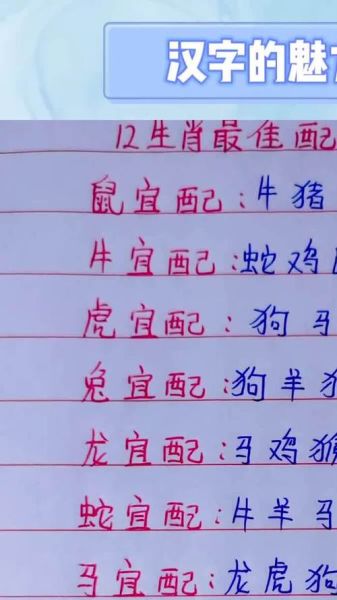 汉字的魅
12生肖最佳配
鼠宜配:牛猪
牛宜配:蛇鸡
虎宜配:狗马
兔宜配:狗羊
龙宜配:马鸡猴
蛇宜配:牛羊马
马宜配:龙虎狗